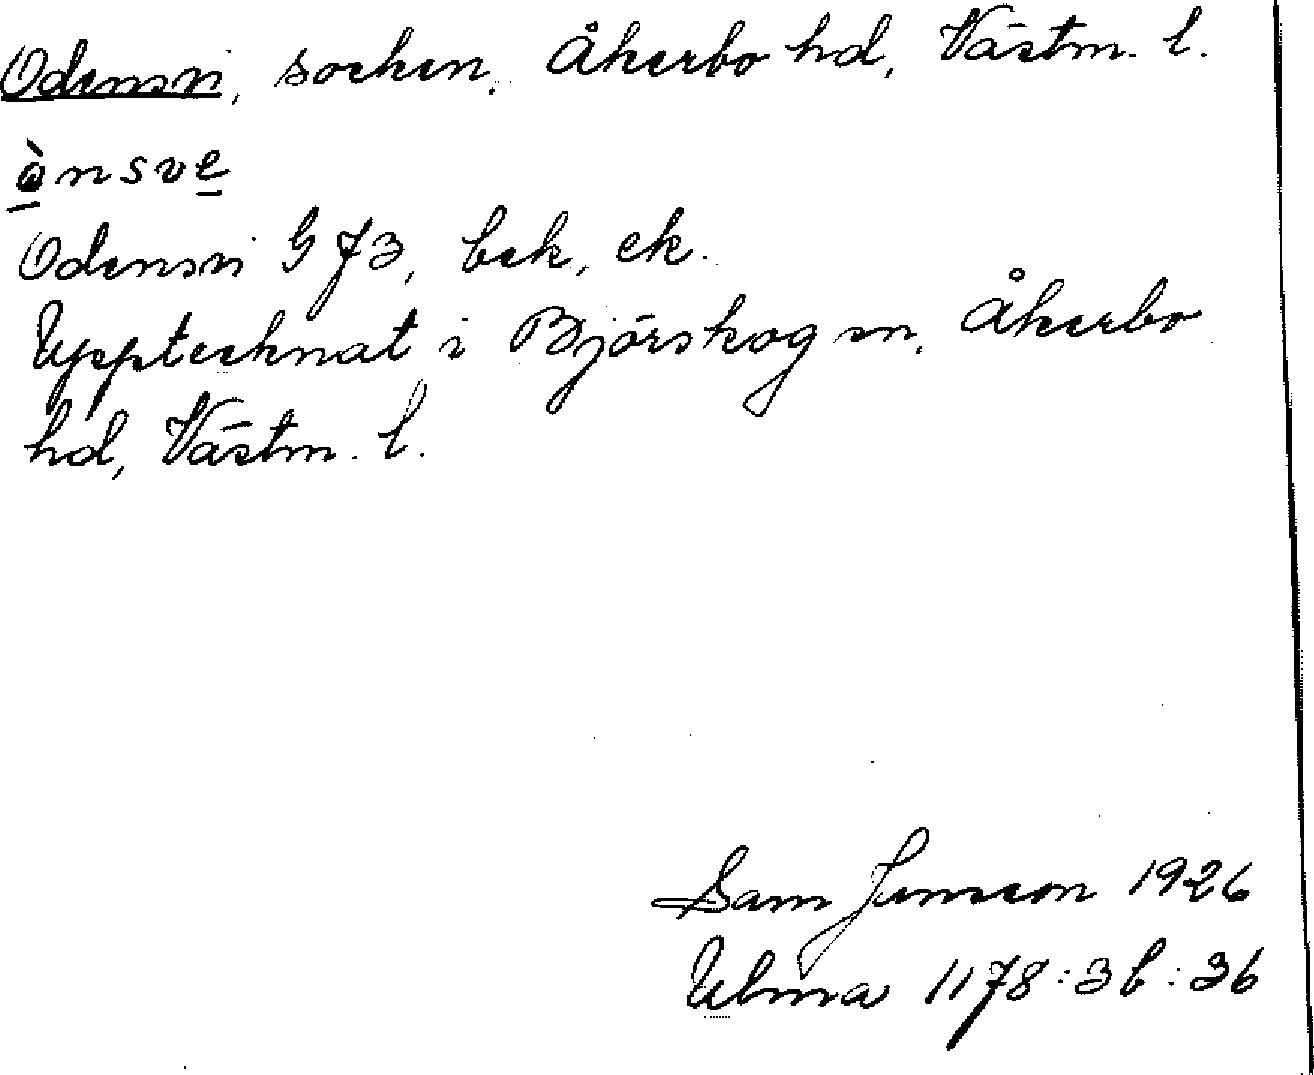 Odensvi, socken, Åkerbo hd, Västm. l.
ò̱nsve̱
Odensvi G 73, bek, ek.
Upptecknat i Björskog sn, Åkerbo
hd, Västm. l.
Sam Jansson 1926
Ulma 1178:3b:36